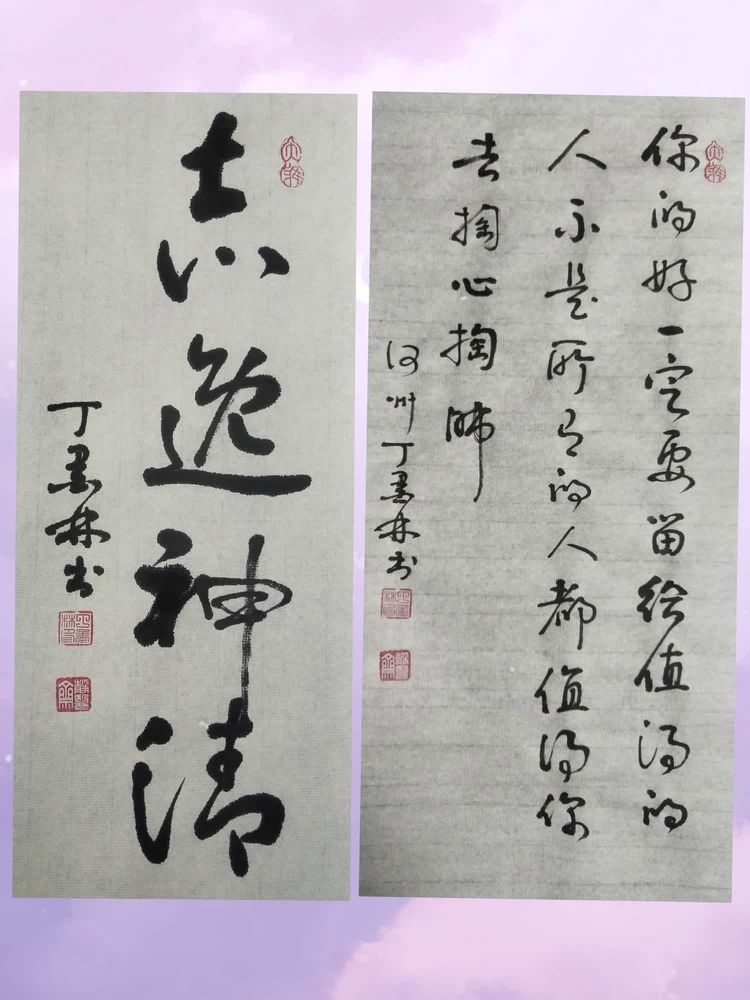 志逸神清
丁墨林书
你的好一定要留给值得的
人不是所有的人都值得你
去掏心掏肺
河州丁墨林书